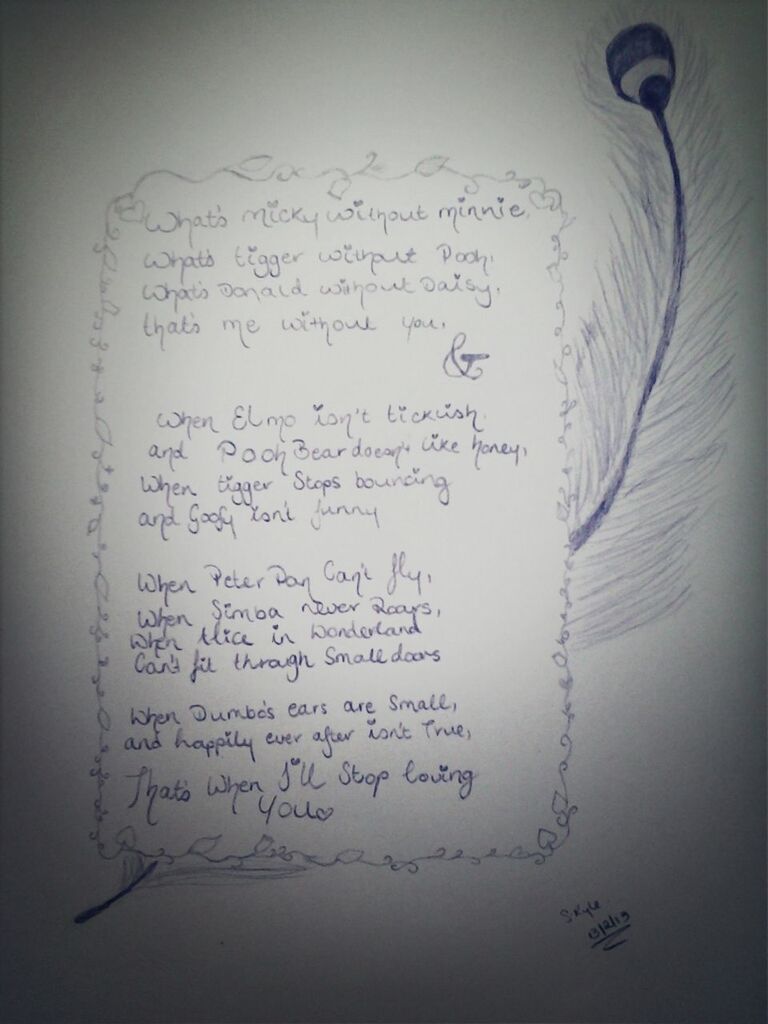 What's micky without minnie,
What's tigger without Pooh,
What's Donald without Daisy,
that's me without you,
&
When Elmo isn't ticklish
and Pooh Bear doesn't like honey,
When tigger Stops bouncing
and Goofy isn't funny
When Peter Pan Can't fly,
When Simba never Roars,
When Alice in Wonderland
Can't fit through Small doors
When Dumbo's ears are Small,
and happily ever after isn't True,
That's When I'll Stop loving
You
S. Kyle
13/2/13